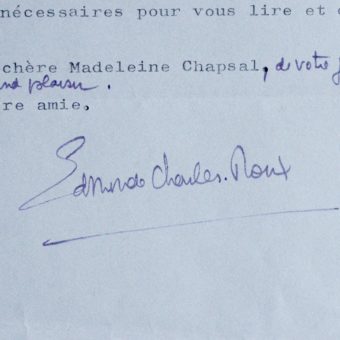 nécessaires pour vous lire et
chère Madeleine Chapsal, de votre
nd plaisir.
re amie,
Edmonde Charles-Roux